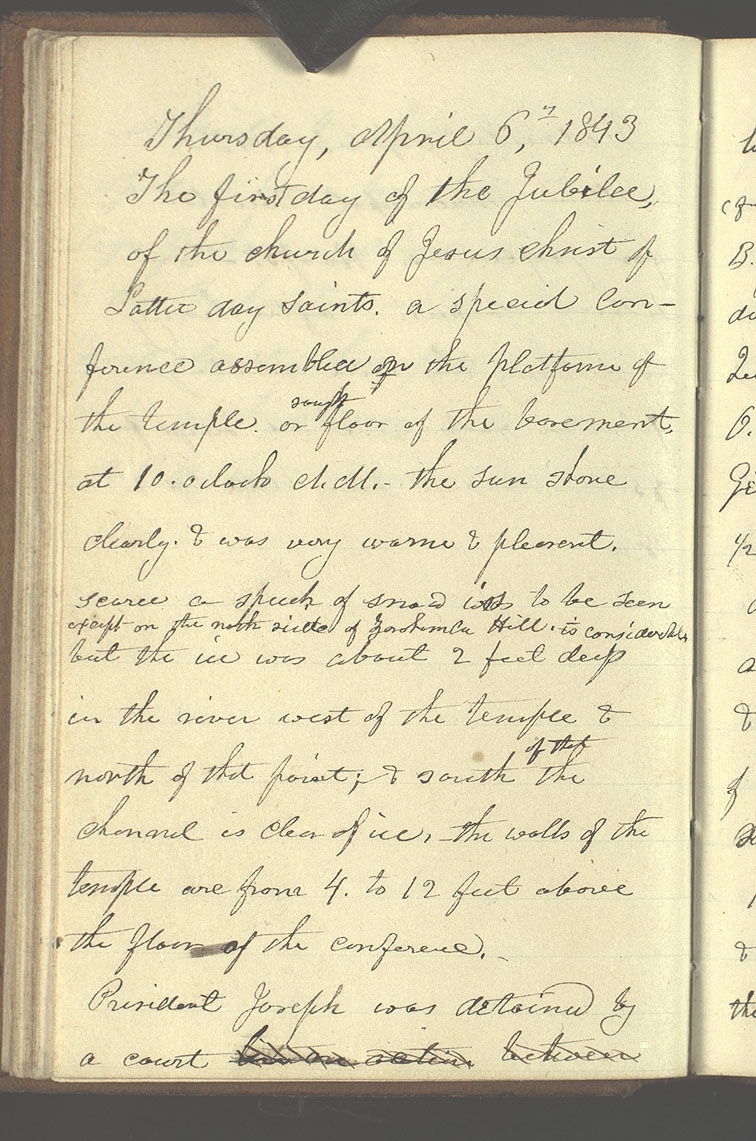 Thursday, April 6,th 1843
The first day of the Jubilee,
of the church of Jesus Christ of
Latter day Saints. a special Con-
ference assembled on the platform of
the temple. or rough floor of the basement,
at 10. o clock A.M.- the sun shone
clearly. & was very warm & pleasent.
scarce a speck of snow is to be seen
except on the north side of Zarahemla Hill. is considerable
but the ice was about 2 feet deep
in the river west of the temple &
north of that point; & south of that the
channel is clear of ice, - the walls of the
temple are from 4. to 12 feet above
the floor of the conference.-
President Joseph was detained by
a court between
to
B.
de
O.
1/2
a
&
of
&
the